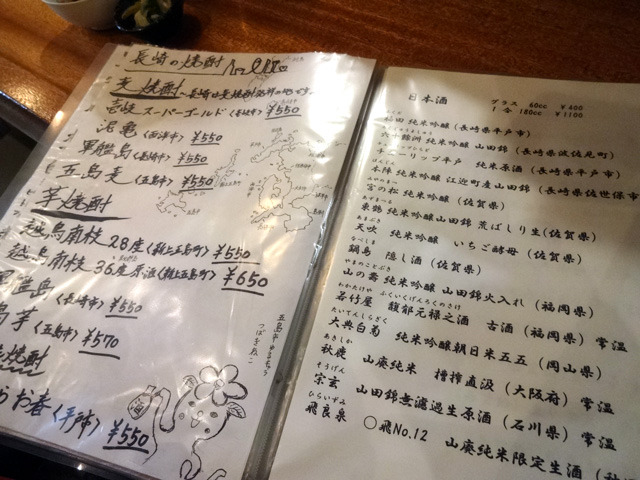 長崎の焼酎
麦焼酎
壱岐スーパーゴールド(壱岐市)¥550
泥亀(西海市)¥550
軍艦島(長崎市)¥550
五島麦(五島市)¥550
芋焼酎
越鳥南枝28度(新上五島町)¥550
越鳥南枝36度原酒(新上五島町)¥650
軍艦島(長崎市)¥550
島芋(五島市)¥570
焼酎
お春(平戸市)¥550
五島市
つばきねこ
日本酒
グラス 60cc ¥400
1合 180cc ¥1100
純米吟醸(長崎県平戸市)
純米吟醸 山田錦(長崎県波佐見町)
チューリップ平戸 純米原酒(長崎県平戸市)
本陣 純米吟醸 江迎町産山田錦(長崎県佐世保市
宮の松 純米吟醸(佐賀県)
東鶴 純米吟醸山田錦 荒ばしり生(佐賀県)
天吹 純米吟醸 いちご酵母(佐賀県)
鍋島 隠し酒(佐賀県)
やまのことぶき
山の壽 純米吟醸 山田錦火入れ(福岡県)
わかたけや ふくいくげんろくのさけ
若竹屋 馥郁元禄之酒 古酒(福岡県)常温
たいてんしらぎく
大典白菊 純米吟醸朝日米五五(岡山県)
あきしか
秋鹿 山廃純米 槽搾直汲(大阪府)常温
そうげん
宗玄 山田錦無濾過生原酒(石川県)常温
ひらいずみ
飛良泉 〇飛No.12 山廃純米限定生酒(秋